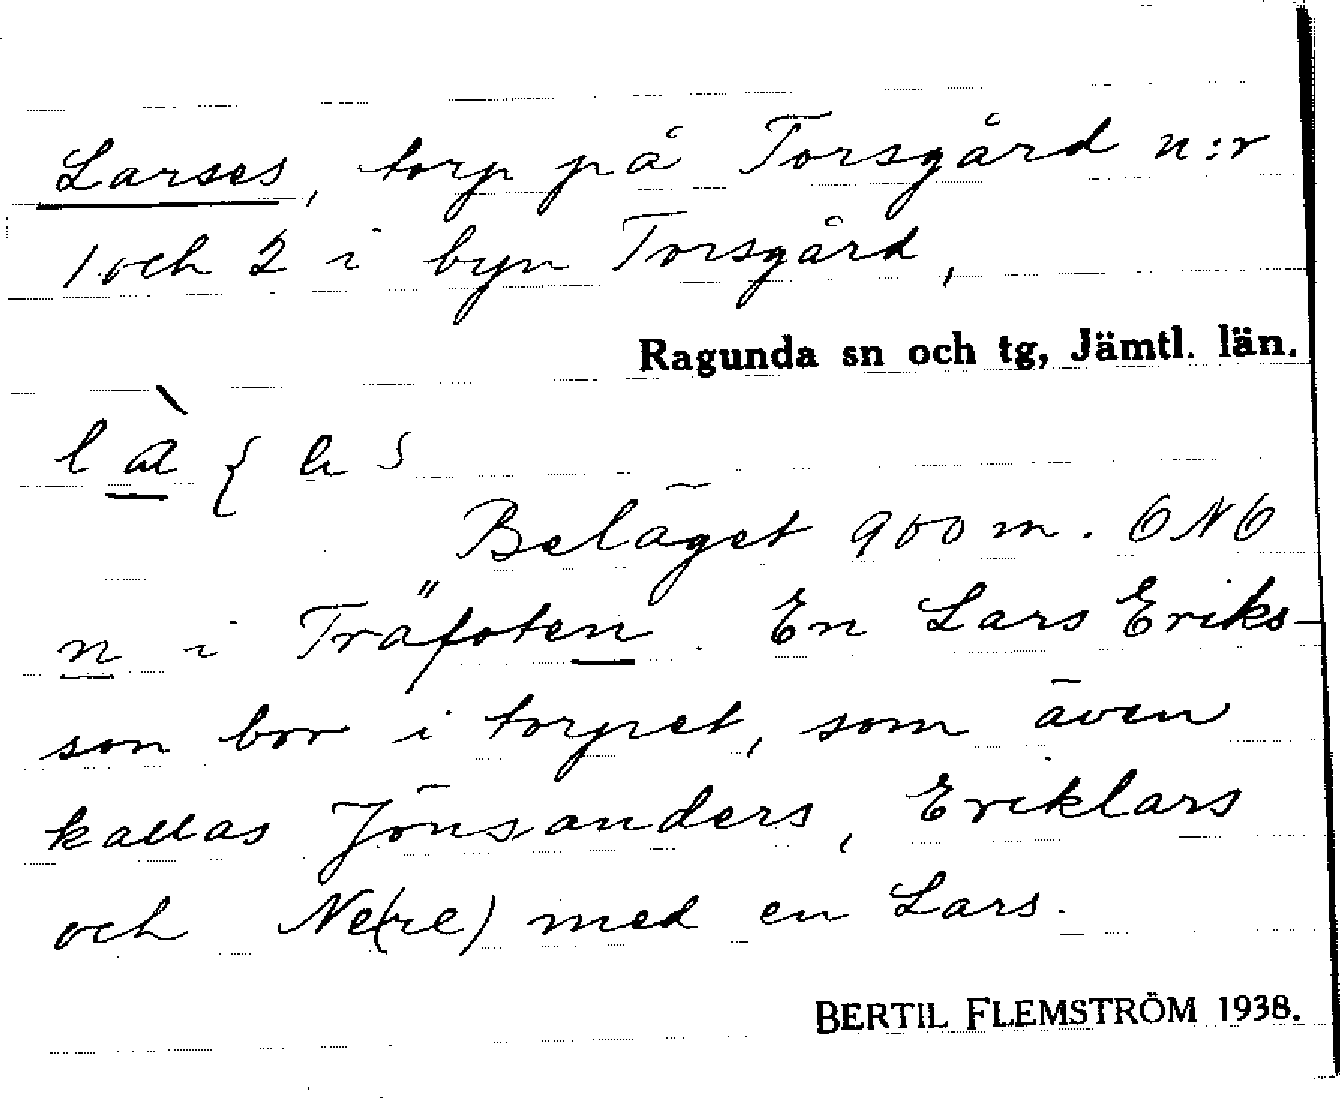 Larses, torp på Torsgård n:r
1 och 2 i byn Torsgård,
Ragunda sn och tg, Jämtl. län.
Beläget 900 m. ONO
n i Träfoten. En Lars Eriks-
son bor i torpet, som även
kallas Jönsanders, Eriklars
och Ne(re) med en Lars.
BERTIL FLEMSTRÖM 1938.